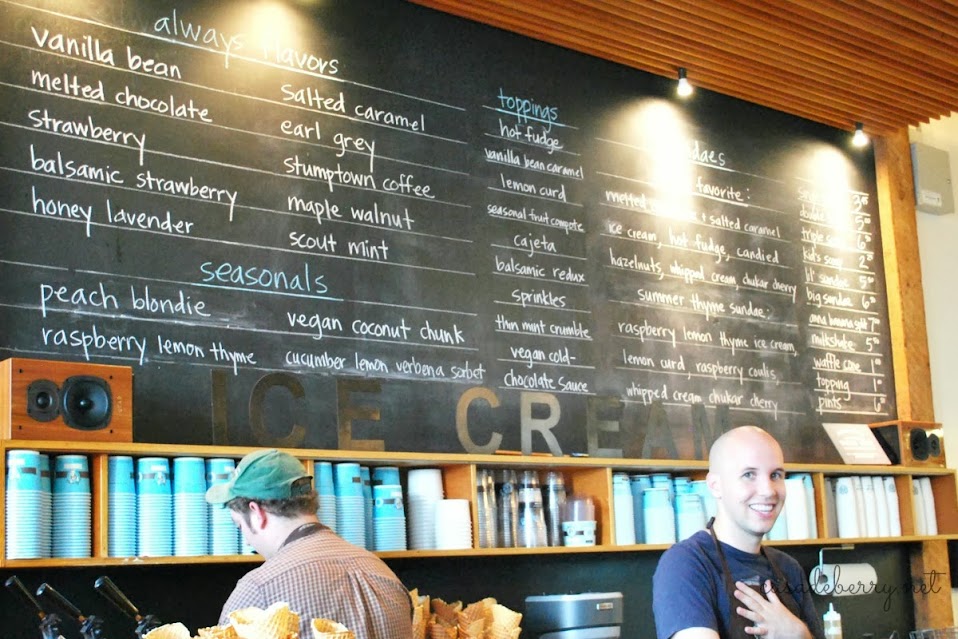 always flavors
vanilla bean
melted chocolate
strawberry
balsamic strawberry
honey lavender
salted caramel
earl grey
stumptown coffee
maple walnut
scout mint
seasonals
peach blondie
raspberry lemon thyme
vegan coconut chunk
cucumber lemon verbena sorbet
toppings
hot fudge
vanilla bean caramel
lemon curd
seasonal fruit compote
cajeta
balsamic redux
sprinkles
thin mint crumble
vegan cold-
chocolate sauce
favorite:
melted + salted caramel
ice cream, hot fudge, candied
hazelnuts, whipped cream, chukar cherry
summer thyme sundae:
raspberry lemon thyme ice cream,
lemon curd, raspberry coulis,
whipped cream chukar cherry
double
triple 6
kid's 2
lil' sundae 5
big sundae 6
anna banana split 7
milkshake 5
waffle cone 1
topping 1
pints 6
ICE CREAM
casadeberry.net